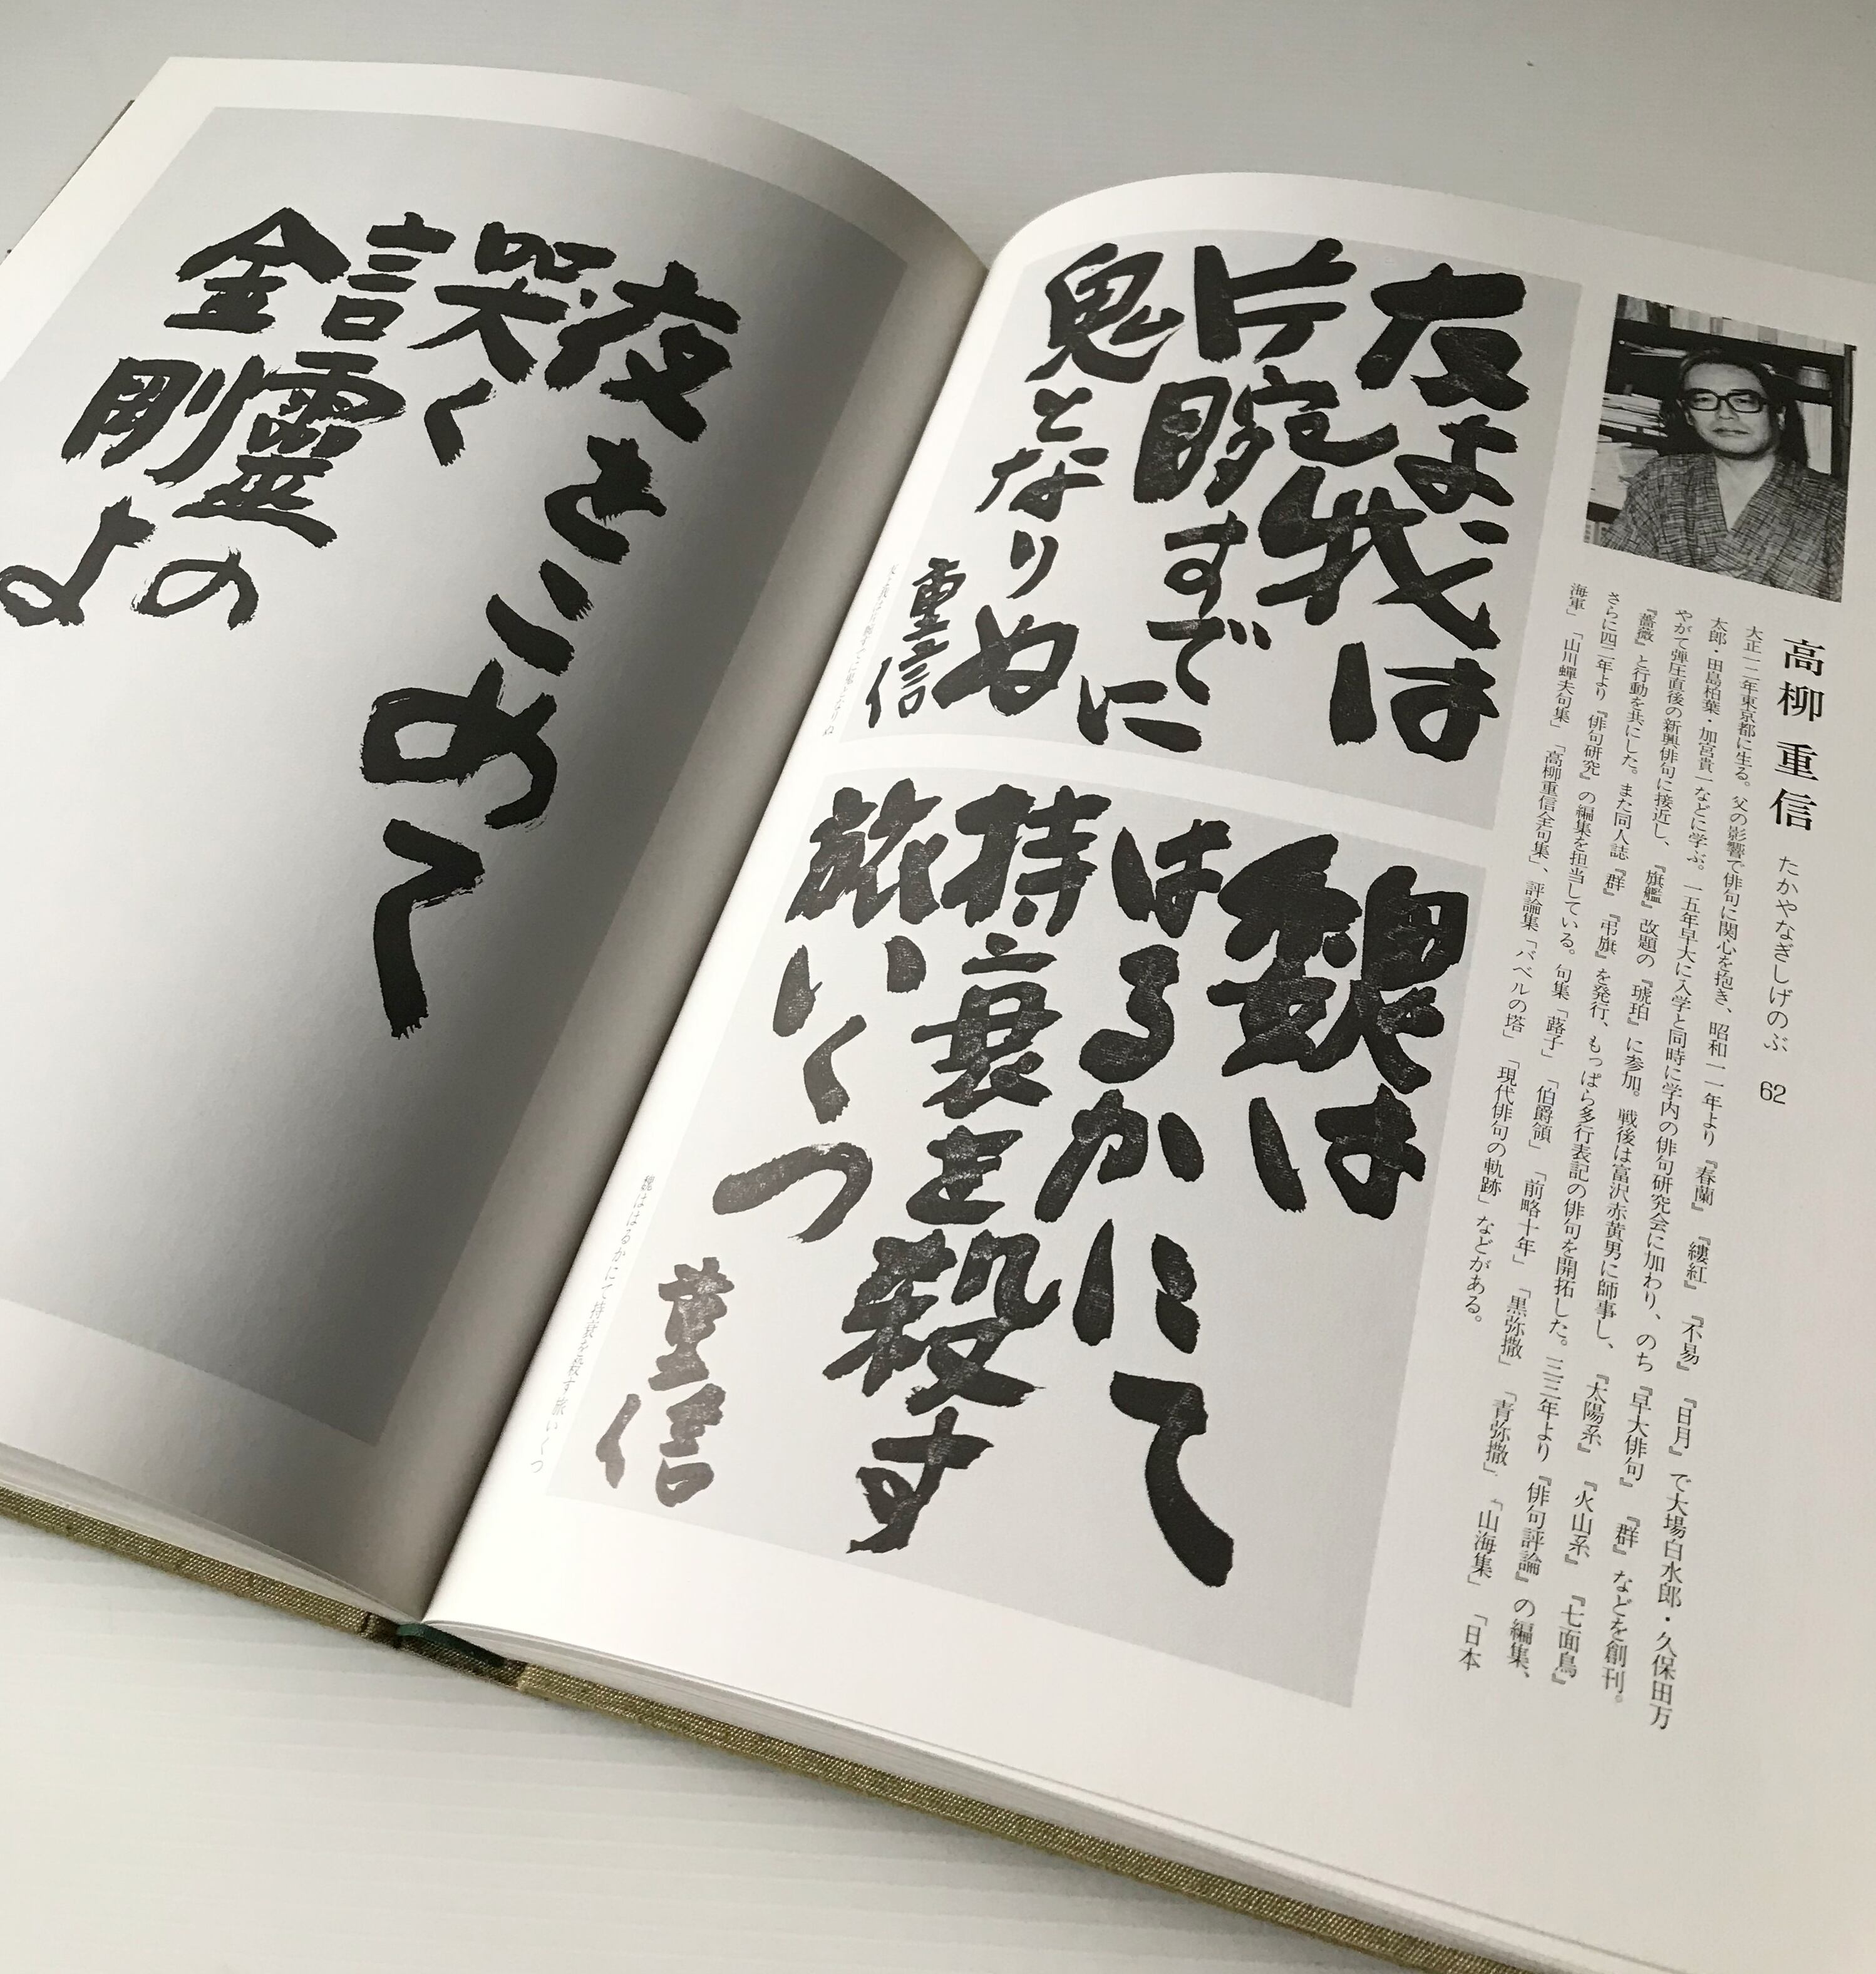 高柳重信 たかやなぎしげのぶ 62
大正一二年東京都に生る。父の影響で俳句に関心を抱き、昭和一一年より『春蘭』『縷紅』『不易』『日月』で大場白水郎・久保田万
太郎・田島柏葉・加宮貴一などに学ぶ。一五年早大に入学と同時に学内の俳句研究会に加わり、のち『早大俳句』『群』などを創刊。
やがて弾圧直後の新興俳句に接近し、『旗艦』改題の『琥珀』に参加。戦後は富沢赤黄男に師事し、『太陽系』『火山系』『七面鳥』
『薔薇』と行動を共にした。また同人誌『群』『弔旗』を発行、もっぱら多行表記の俳句を開拓した。三三年より『俳句評論』の編集、
さらに四二年より『俳句研究』の編集を担当している。句集「蕗子」「伯爵領」「前略十年」「黒弥撒」「青弥撒」「山海集」「日本
海軍」「山川蟬夫句集」「高柳重信全句集」、評論集「バベルの塔」「現代俳句の軌跡」などがある。
友よ我は
片腕すでに
鬼となりぬ
重信
友よ我は片腕すでに鬼となりぬ
魏は
はるかにて
持衰を殺す
旅いくつ
重信
魏ははるかにて持衰を殺す旅いくつ
夜をこめて
哭く
言霊の
金剛よ